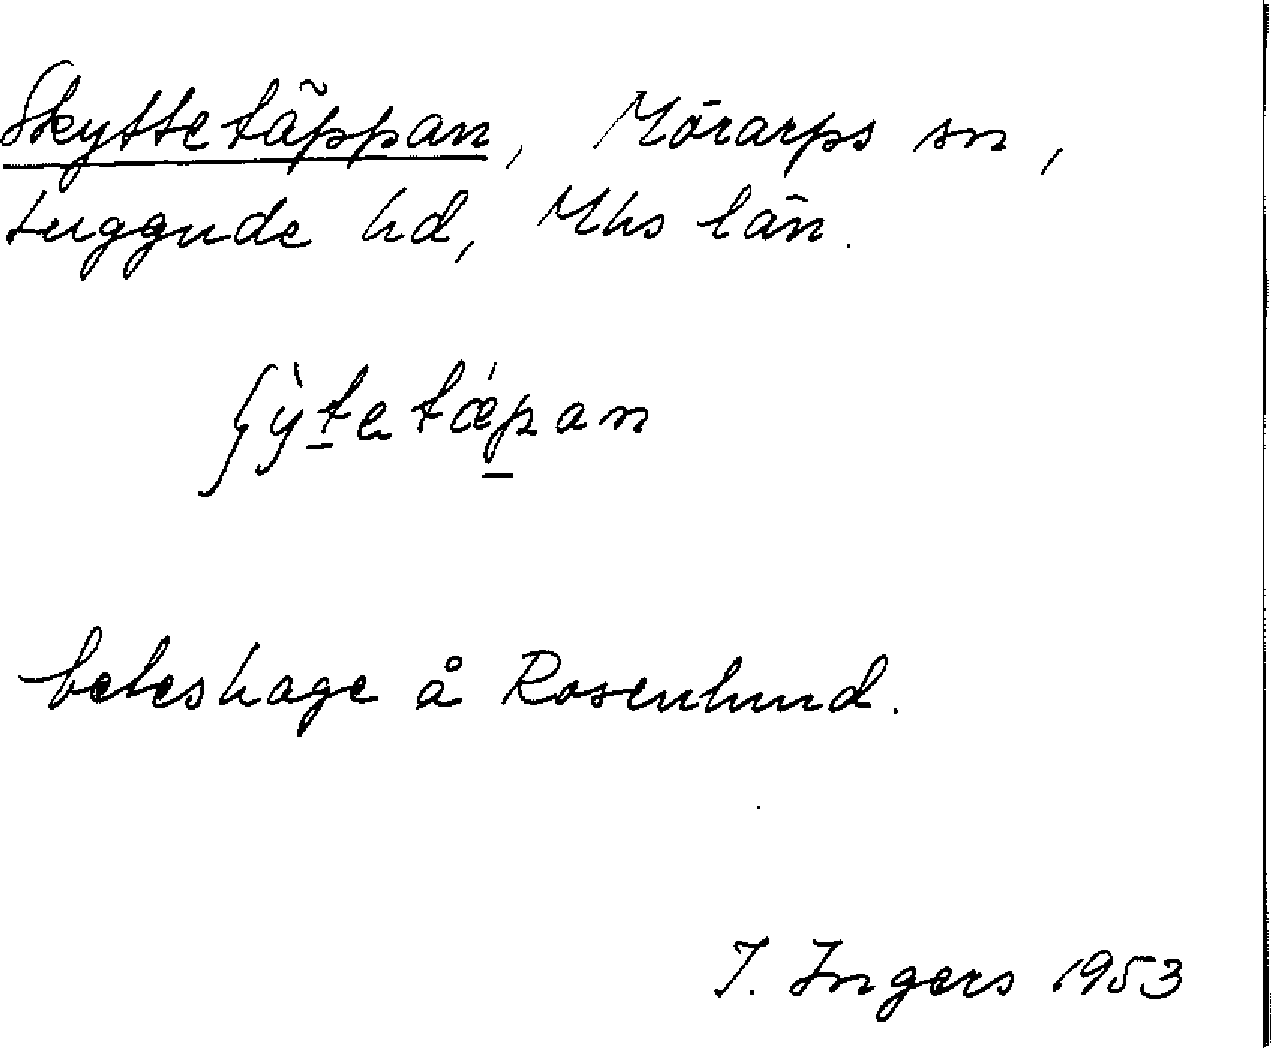 Skyttetäppan, Mörarps sn,
Luggude hd, Mhs län.
ʃỳt̲etǽp̲an
beteshage å Rosenlund.
I. Ingers 1953